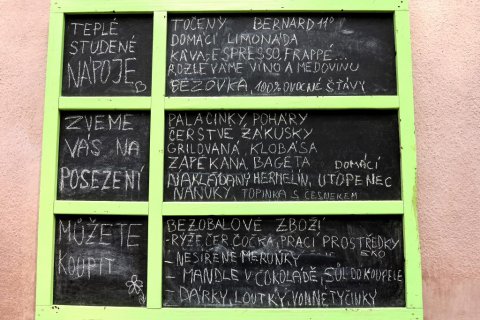 TEPLÉ
STUDENÉ
NÁPOJE
TOČENÝ BERNARD 11°
DOMÁCÍ LIMONÁDA
KÁVA-ESPRESSO, FRAPPÉ
ROZLÉVÁME VÍNO A MEDOVINU
BEZOVKA, 100% OVOCNÉ ŠŤÁVY
ZVEME
VÁS NA
POSEZENÍ
PALAČINKY, POHÁRY
ČERSTVÉ ZÁKUSKY
GRILOVANÁ KLOBÁSA
ZAPÉKANÁ BAGETA DOMÁCÍ
NAKLÁDANÝ HERMELÍN, UTOPENEC
NANUKY, TOPINKA S ČESNEKEM
MŮŽETE
KOUPIT
BEZOBALOVÉ ZBOŽÍ
-RÝŽE, ČER. ČOČKA, PRACÍ PROSTŘEDKY
EKO
-NESÍŘENÉ MERUŇKY
- MANDLE V ČOKOLÁDĚ, SŮL DO KOUPELE
- DÁRKY, LOUTKY, VONNÉ TYČINKY